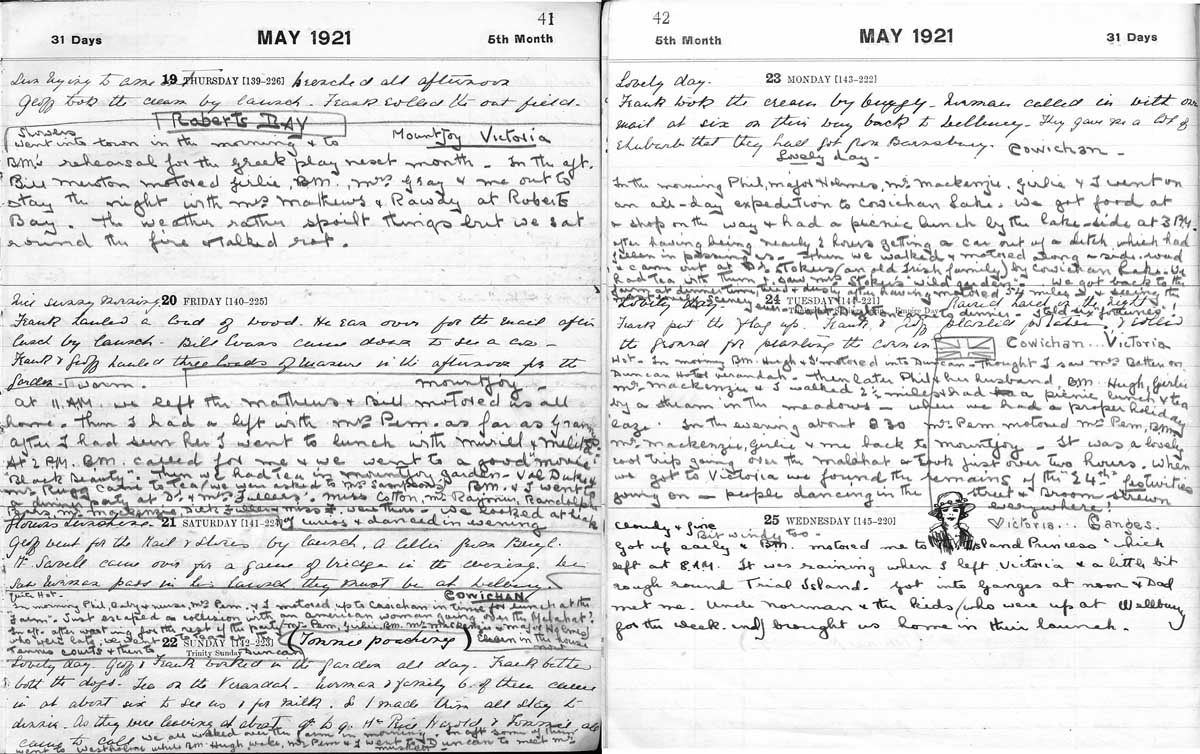 41
31 Days
MAY 1921
5th Month
19 THURSDAY [139-226]
all afternoon
Geoff took the cream by launch. Frank rolled the oat field.
Roberts BAY
Showers
Mountjoy Victoria
went into town in the morning & to
BM's rehearsal for the greek play next month. In the aft.
Bill motored Girlie, BM., Mrs Gray & me out to
stay the night with Mrs Mathews & Rawdy at Roberts
Bay. The weather rather spoilt things but we sat
round the fire & talked rot.
Nice sunny morning
20 FRIDAY [140-225]
Frank hauled a load of wood. He ran over for the mail after
lunch by launch. Bill Evans came down to see a cow.
Frank & Geoff hauled three loads of manure in the afternoon for the
garden.
warm.
Mountjoy
at 11 A.M. we left the Mathews & Bill motored us all
home. Then I had a left with Mrs Pem. as far as Grans
after I had seen her I went to lunch with Muriel &
At 2 P.M. BM. called for me & we went to a good "movie"
"Black Beauty" then we had tea in Mountjoy garden.
Mrs Rugg came to tea. BM. & I went to
a dinner party at Dr & Mrs Fullers. Miss Cotton, Mrs Raymur, Randolph
Dick Fuller & Miss were there. We looked at
curios & danced in evening
21 SATURDAY [141-224]
Geoff went for the Mail & Stores by launch. A letter from Beryl.
came over for a game of bridge in the evening. We
saw Norman pass in his launch they must be at
Quite Hot.
COWICHAN
In morning Phil, baby & nurse, Mrs Pem. & I motored up to Cowichan in time for lunch at the
Farm. Just escaped a collision with an american woman going over the Malahat!
In aft. after waiting for the rest of the party
who were late, we went to
tennis courts & then to
Duncan
22 SUNDAY [142-223]
Trinity Sunday
(Tommie poaching)
in the house
Lovely day. Geoff & Frank worked in the garden all day. Frank
both the dogs. Tea on the Verandah. Norman & family 6 of them came
in at about six to see us & for milk. So I made them all stay to
dinner. As they were leaving at about Mr Rice Harold & Tommie
came to call
we all walked over the farm in morning. In aft some of them
went to Westholme while BM. Hugh Mrs Pem & I went to Duncan to meet Mrs
42
5th Month
MAY 1921
31 Days
Lovely day.
23 MONDAY [143-222]
Frank took the cream by buggy. Norman called in with our
mail at six on their way back to Wellbury. They gave us a lot of
Rhubarb that they had got from Barnsbury.
Cowichan
Lovely day.
In the morning Phil, Major Holmes, Mrs Mackenzie, Girlie & I went on
an all-day expedition to Cowichan Lake. We got food at
a shop on the way & had a picnic lunch by the lake-side at 3 P.M.
after having being nearly 2 hours getting a car out of a ditch which had
fallen in passing us. Then we walked & motored along a side-road
& came out at Dr Stokers (an old Irish family) by Cowichan Lake. We
had tea with them & saw Mrs Stokers wild garden. We got back to the
farm at dinner time tired & dusty after having motored miles & seeing the
24 TUESDAY [144-221]
Empire Day
Lovely day
Rained hard in the night
to dinner. I told six fortunes.
Frank put the flag up. Frank & Geoff planted potatoes & rolled
the ground for planting the corn in
Cowichan... Victoria
Hot. In morning BM. Hugh & I motored into Duncan. Thought I saw Mrs Betton on
Duncan Hotel verandah. Then later Phil & her husband, BM. Hugh, Girlie
Mrs Mackenzie & I walked 2½ miles & had a picnic lunch & tea
by a stream in the meadows — where we had a proper holiday
laze. In the evening about 8.30 Mrs Pem motored Mr Pem, BM
Mrs Mackenzie, Girlie & me back to Mountjoy. It was a lovely
cool trip going over the Malahat & took just over two hours. When
we got to Victoria we found the remains of the "24th" festivities
going on — people dancing in the street & Broom strewn
everywhere!
25 WEDNESDAY [145-220]
Cloudy & fine
Bit windy too.
Victoria... Ganges.
Got up early & BM. motored me to "Island Princess" which
left at 8 A.M. It was raining when I left Victoria & a little bit
rough round Trial Island. Got into Ganges at noon & Dad
met me. Uncle Norman & the kids (who were up at Wellbury
for the week-end) brought us home in their launch.